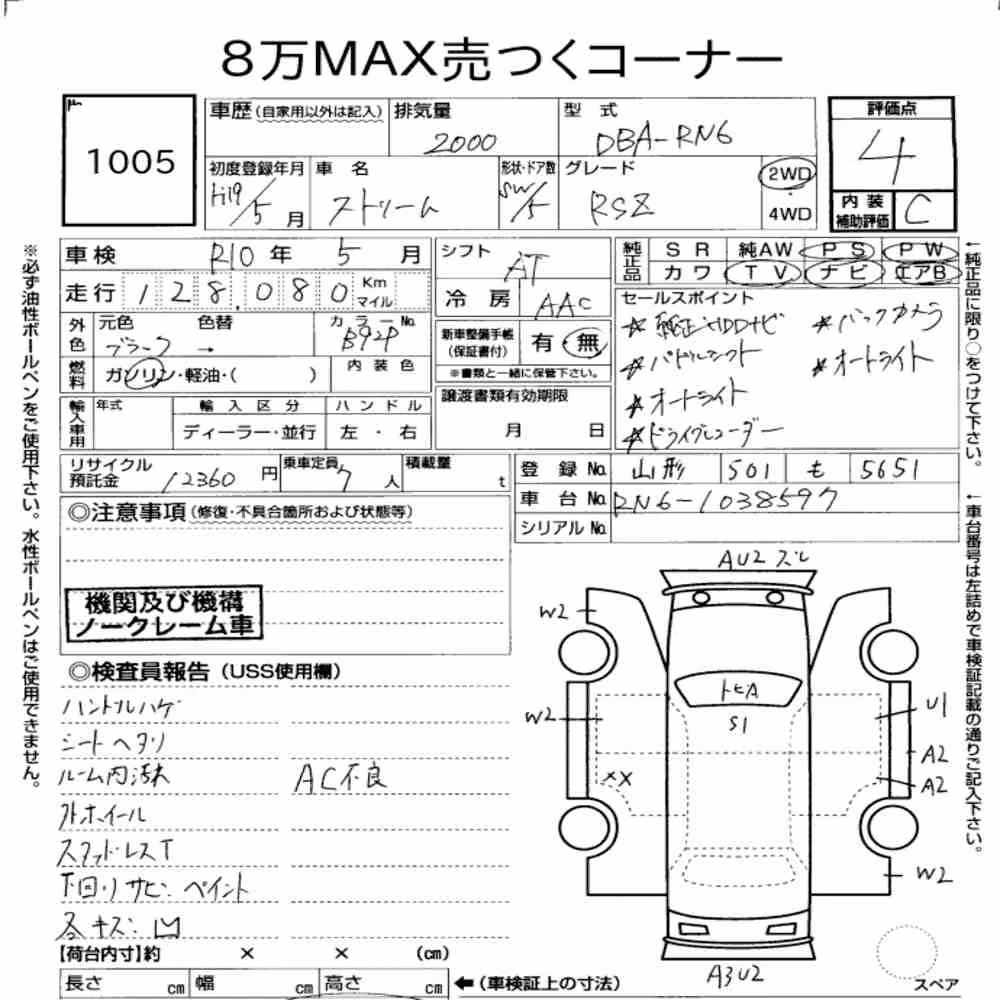 8万MAX売つくコーナー
1005
車歴(自家用以外は記入) 排気量 2000 型式 DBA-RN6
評価点 4
初度登録年月 H19/5月 車名 ストリーム 形状・ドア数 SW/5 グレード RSZ 2WD・4WD
内装補助評価 C
車検 R10年5月 シフト AT
走行 128,080 Km マイル 冷房 AAC
純正品 SR 純AW PS PW
カワ TV ナビ エアB
外色 元色 ブラーク 色替 → カラーNo. B92P 内装色
新車整備手帳(保証書付) 有・無
※書類と一緒に保管下さい。
燃料 ガソリン・軽油・( )
セールスポイント
☆純正HDDナビ ☆バックカメラ
☆パドルシフト ☆オートライト
☆オートライト
☆ドライブレコーダー
輸入車用 年式 輸入区分 ディーラー・並行 ハンドル 左・右
譲渡書類有効期限 月 日
リサイクル預託金 12360円 乗車定員 7人 積載量 t
登録No. 山形 501 も 5651
車台No. RN6-1038597
シリアルNo.
◎注意事項(修復・不具合箇所および状態等)
機関及び機構
ノークレーム車
◎検査員報告(USS使用欄)
ハンドルハゲ
シートヘタリ
ルーム内汚れ AC不良
外ホイール
スタッドレスT
下回りサビ・ペイント
各キズ・凹
【荷台内寸】約 × × (cm)
長さ cm 幅 cm 高さ cm ←(車検証上の寸法)
AU2 ズレ
W2
トビA
S1
W2
U1
A2
XX
A2
W2
A3U2
スペア
※必ず油性ボールペンをご使用下さい。水性ボールペンはご使用できません。
←純正品に限り○をつけて下さい。
←車台番号は左詰めで車検証記載の通りご記入下さい。